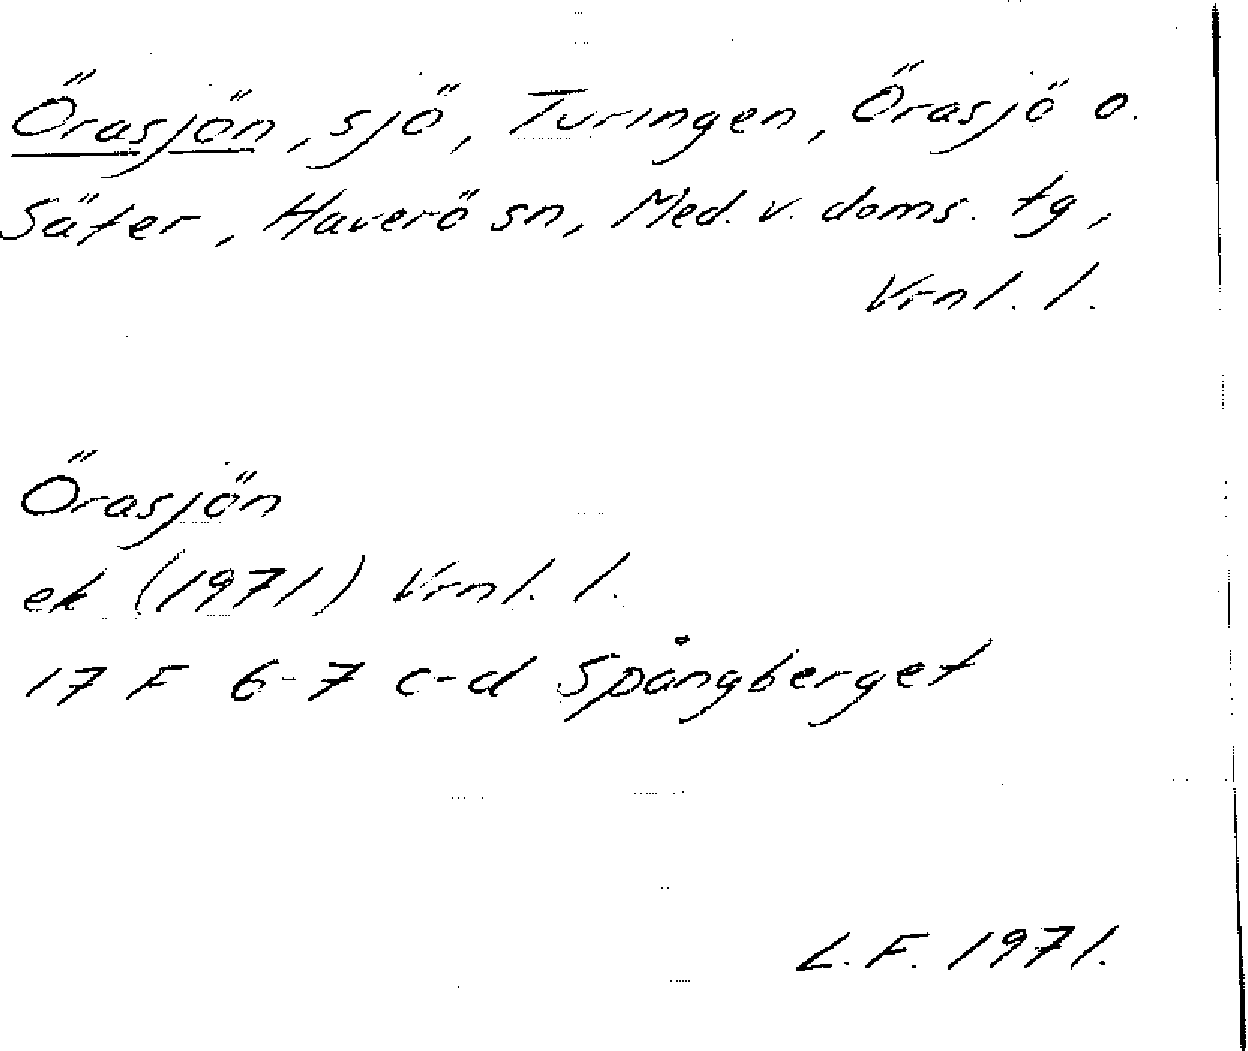 Örasjön, sjö, Turingen, Örasjö o.
Säter, Haverö sn, Med. v. doms. tg,
Vrnl. l.
Örasjön
ek (1971) Vrnl. l.
17 F 6-7 c-d Spångberget
L.F. 1971.